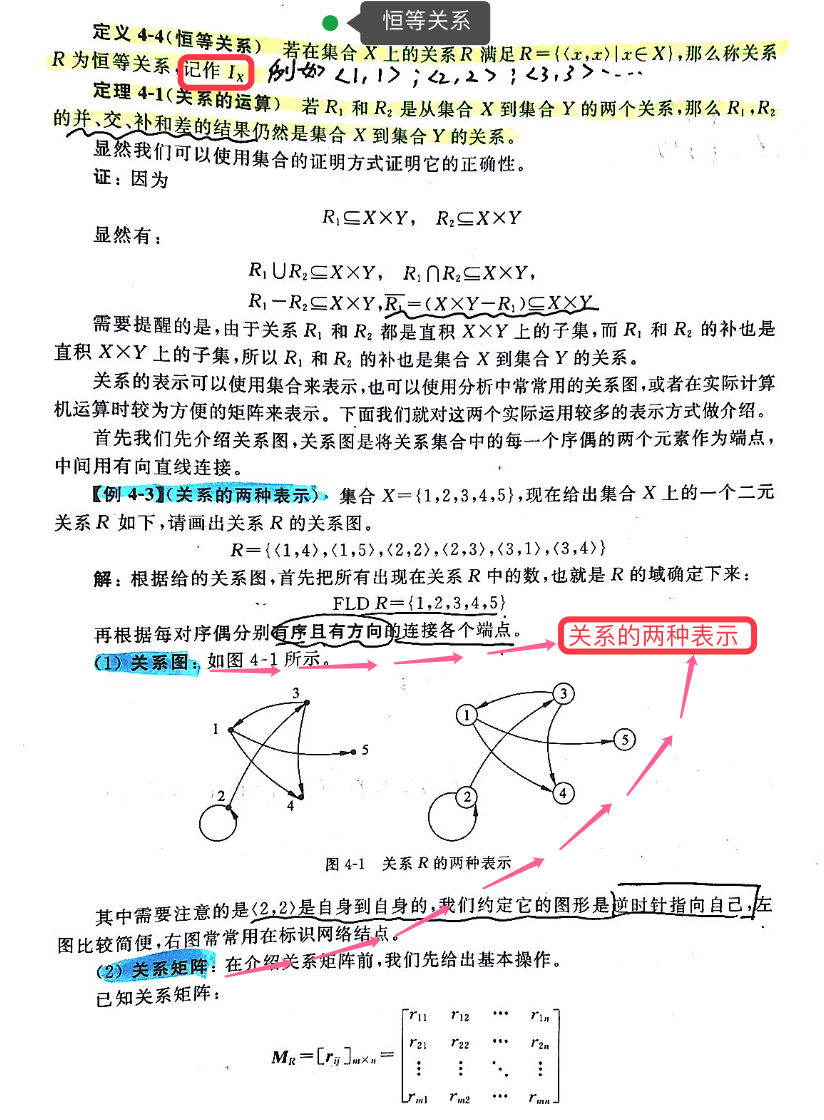 恒等关系
定义 4-4(恒等关系) 若在集合 X 上的关系 R 满足R={⟨x,x⟩|x∈X},那么称关系
R 为恒等关系,记作 Iₓ 例如 <1,1>;<2,2>;<3,3>····
定理 4-1(关系的运算) 若 R₁ 和 R₂ 是从集合 X 到集合 Y 的两个关系,那么 R₁,R₂
的并、交、补和差的结果仍然是集合 X 到集合 Y 的关系。
显然我们可以使用集合的证明方式证明它的正确性。
证:因为
R₁⊆X×Y, R₂⊆X×Y
显然有:
R₁∪R₂⊆X×Y, R₁∩R₂⊆X×Y,
R₁-R₂⊆X×Y,R̅₁=(X×Y-R₁)⊆X×Y
需要提醒的是,由于关系 R₁ 和 R₂ 都是直积 X×Y 上的子集,而 R₁ 和 R₂ 的补也是
直积 X×Y 上的子集,所以 R₁ 和 R₂ 的补也是集合 X 到集合 Y 的关系。
关系的表示可以使用集合来表示,也可以使用分析中常常用的关系图,或者在实际计算
机运算时较为方便的矩阵来表示。下面我们就对这两个实际运用较多的表示方式做介绍。
首先我们先介绍关系图,关系图是将关系集合中的每一个序偶的两个元素作为端点,
中间用有向直线连接。
【例 4-3】(关系的两种表示) 集合 X={1,2,3,4,5},现在给出集合 X 上的一个二元
关系 R 如下,请画出关系 R 的关系图。
R={⟨1,4⟩,⟨1,5⟩,⟨2,2⟩,⟨2,3⟩,⟨3,1⟩,⟨3,4⟩}
解:根据给的关系图,首先把所有出现在关系 R 中的数,也就是 R 的域确定下来:
FLD R={1,2,3,4,5}
再根据每对序偶分别有序且有方向的连接各个端点。
关系的两种表示
(1) 关系图:如图 4-1 所示。
3
1
5
2
4
3
1
5
2
4
图 4-1 关系 R 的两种表示
其中需要注意的是⟨2,2⟩是自身到自身的,我们约定它的图形是逆时针指向自己,左
图比较简便,右图常常用在标识网络结点。
(2) 关系矩阵:在介绍关系矩阵前,我们先给出基本操作。
已知关系矩阵:
r₁₁ r₁₂ ⋯ r₁ₙ
r₂₁ r₂₂ ⋯ r₂ₙ
M_R=[r_ij]_m×n=
⋮ ⋮ ⋱ ⋮
r_m1 r_m2 ⋯ r_mn